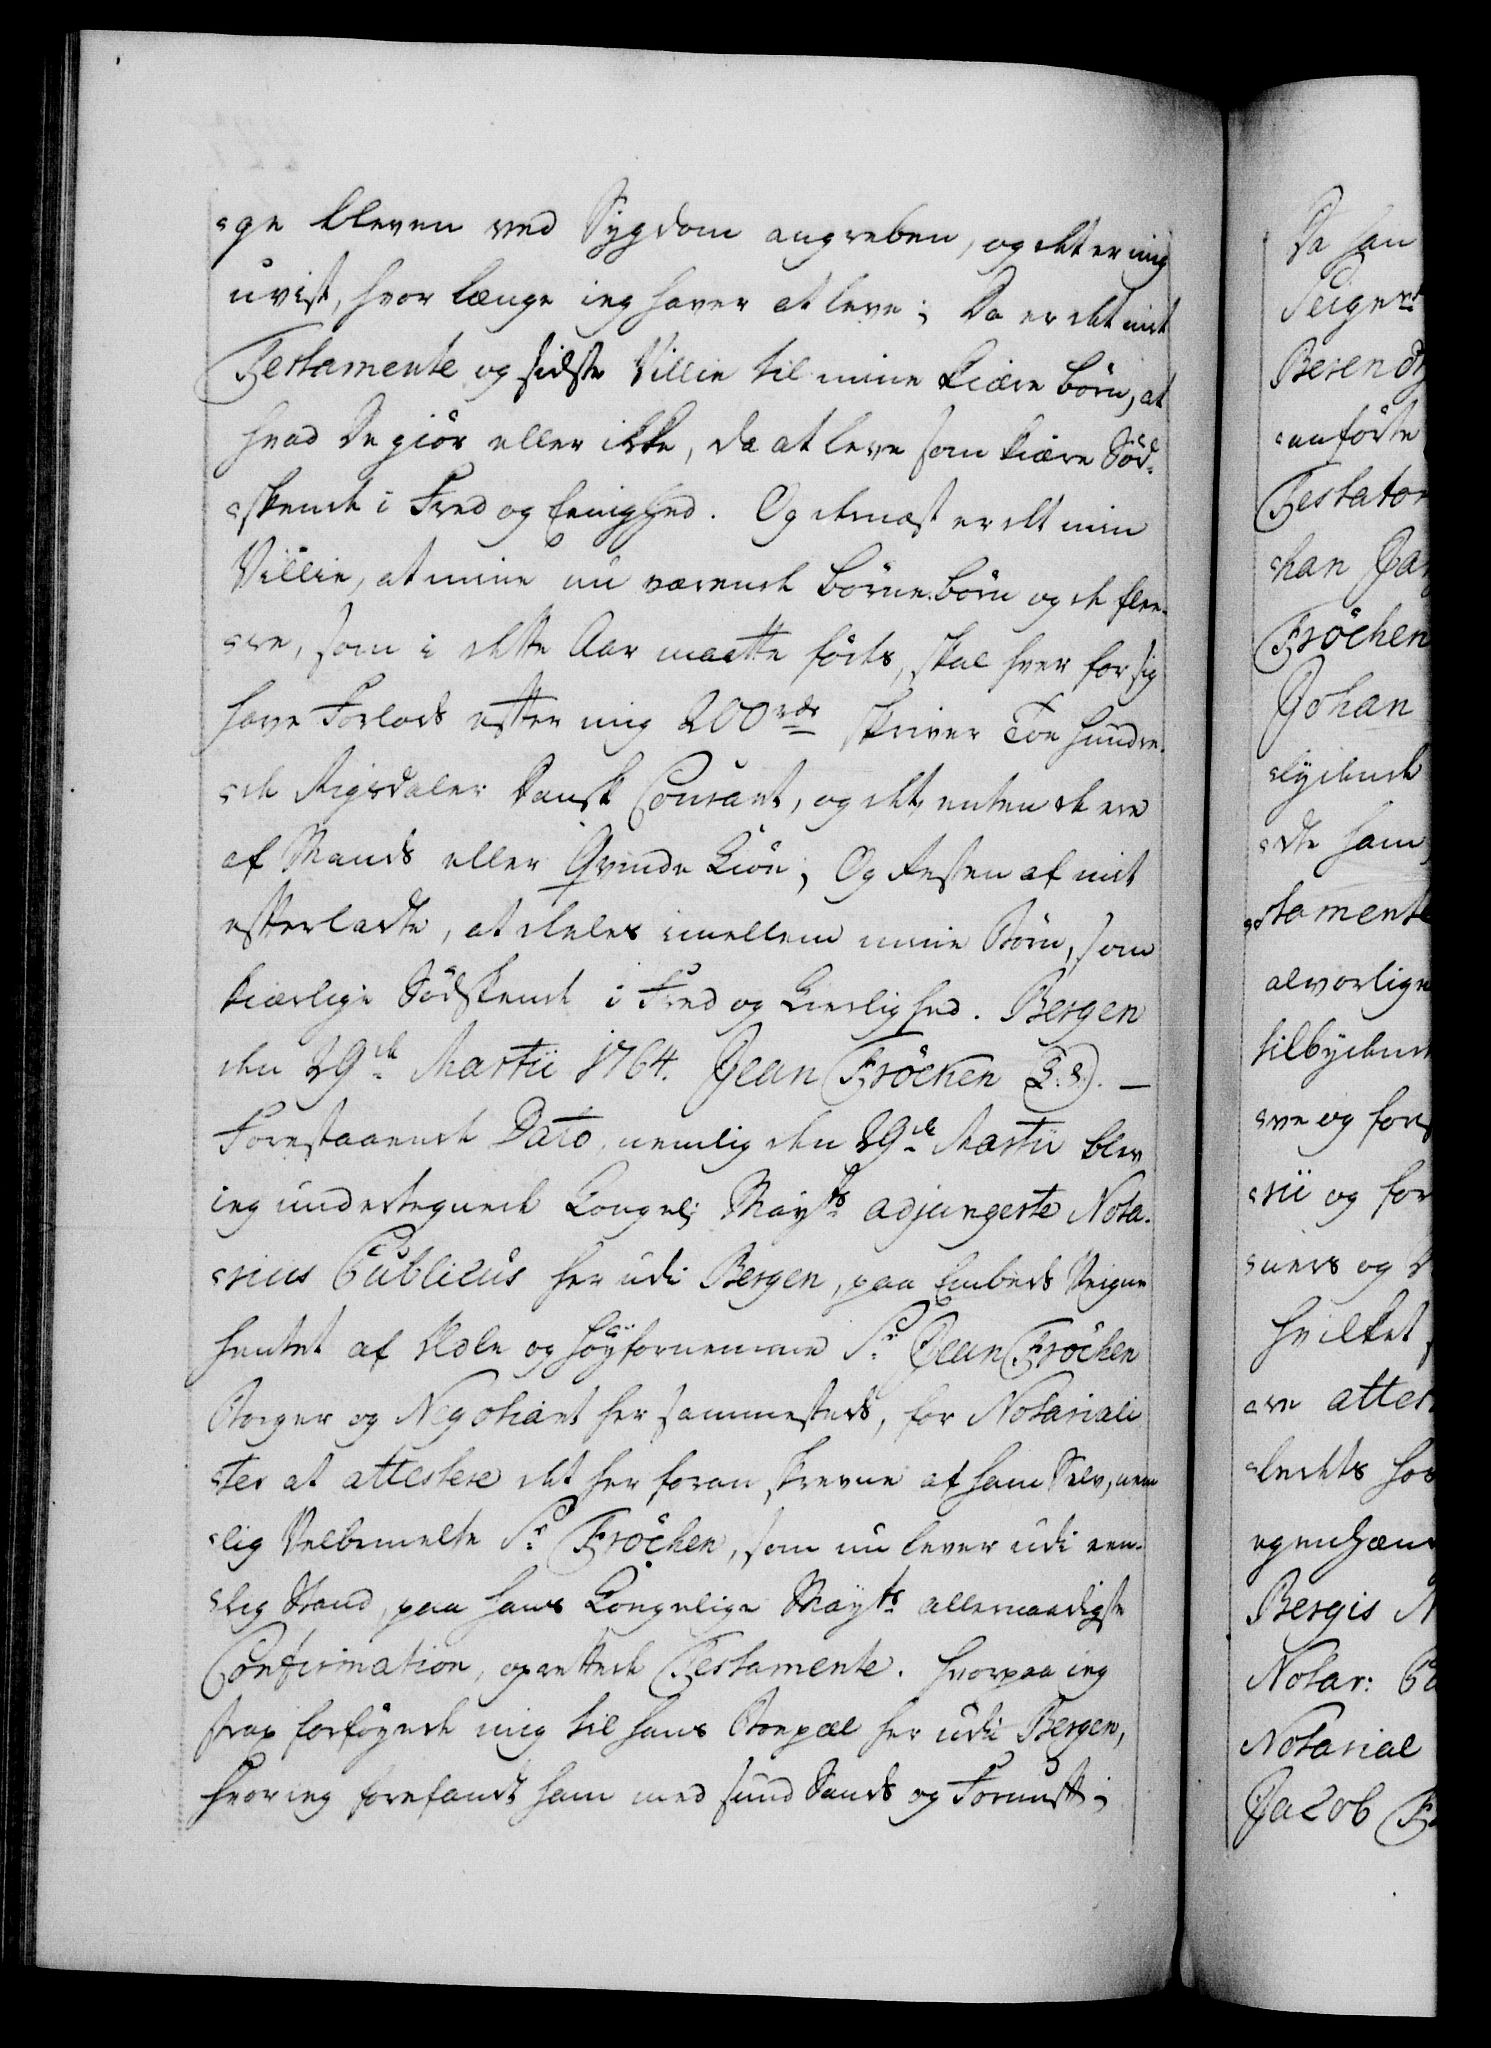 ge bleven ved Sygdom angreben, og det er mig
uvist, hvor længe ieg haver at leve; Da er det mit
Testamente og sidste Villie til mine kiære børn, at
hvad De giör eller ikke, da at leve som kiære Söd-
skende i Fred og Eenighed. Og dernæst er det min
Villie, at mine nu værende börnebörn og de flee-
re, som i dette Aar maatte födes, skal hver for sig
have Forlods efter mig 200 rdr skriver Toe hundre-
de Rigsdaler Dansk Courant, og det, enten de ere
af Mands eller Qvinde Kiön; Og Resten af mit
efterladte, at deeles imellem mine Börn, som
kiærlige Södskende i Fred og Kierlighed. Bergen
den 29de Martii 1764. Jean Fröchen (L. S.). —
Forestaaende Dato, nemlig den 29de Martii blev
ieg undertegnede Kongel: May:ts adjungerte Nota-
rius Publicus her udi Bergen, paa Embeds Veigne
hentet af Ædle og Höyfornemme Sr. Jean Fröchen
Borger og Negotiant her sammesteds, for Notariali
ter at attestere det her foran skrevne af ham Selv, nem
lig Velbemelte Sr. Fröchen, som nu lever udi een-
lig Stand, paa hans Kongelige May:ts allernaadigste
Confirmation, oprettede Testamente. Hvorpaa ieg
strax forföyede mig til hans Boepæl her udi Bergen,
hvor ieg forefandt ham med sund Sands og Fornuft;
Da han
Berend
anförte
Testator
han Ja
Fröchen
Johan
lydende
dte ham
tamente
alvorlige
tilbydend
ve og for
rii og for
ners og
hvilket
re attes
ledes hos
egenhæn
Bergis N
Notar: P
Notarial
Jacob F